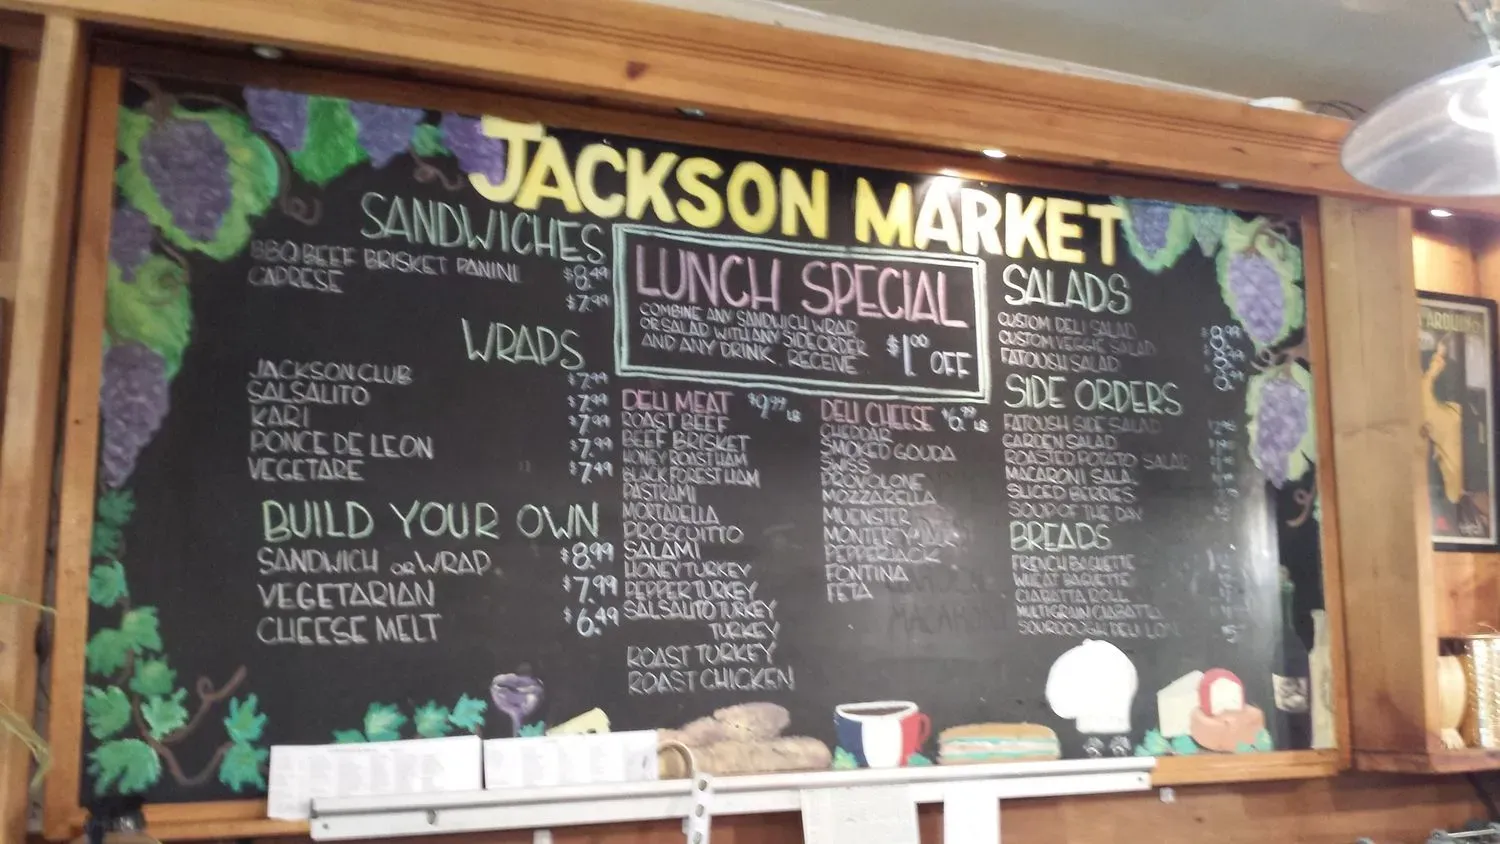 JACKSON MARKET
SANDWICHES
BBQ BEEF BRISKET PANINI $8.49
CAPRESE $7.99
WRAPS
JACKSON CLUB $7.99
SALSALITO $7.99
KARI $7.99
PONCE DE LEON $7.99
VEGETARE $7.49
BUILD YOUR OWN
SANDWICH OR WRAP $8.99
VEGETARIAN $7.99
CHEESE MELT $6.49
LUNCH SPECIAL
COMBINE ANY SANDWICH WRAP
OR SALAD WITH ANY SIDE ORDER
AND ANY DRINK. RECEIVE $1.00 OFF
DELI MEAT $9.99 LB
ROAST BEEF
BEEF BRISKET
HONEY ROAST HAM
BLACK FOREST HAM
PASTRAMI
MORTADELLA
PROSCUITTO
SALAMI
HONEY TURKEY
PEPPER TURKEY
SALSALITO TURKEY
TURKEY
ROAST TURKEY
ROAST CHICKEN
DELI CHEESE LB
CHEDDAR
SMOKED GOUDA
SWISS
PROVOLONE
MOZZARELLA
MUENSTER
MONTEREY JACK
PEPPERJACK
FONTINA
FETA
SALADS
CUSTOM DELI SALAD
CUSTOM VEGGIE SALAD
FATOUSH SALAD
SIDE ORDERS
FATOUSH SIDE SALAD
GARDEN SALAD
ROASTED POTATO SALAD
MACARONI SALAD
SLICED BERRIES
SOUP OF THE DAY
BREADS
FRENCH BAGUETTE
WHEAT BAGUETTE
CIABATTA ROLL
MULTIGRAIN CIABATTA
SOURDOUGH DELI